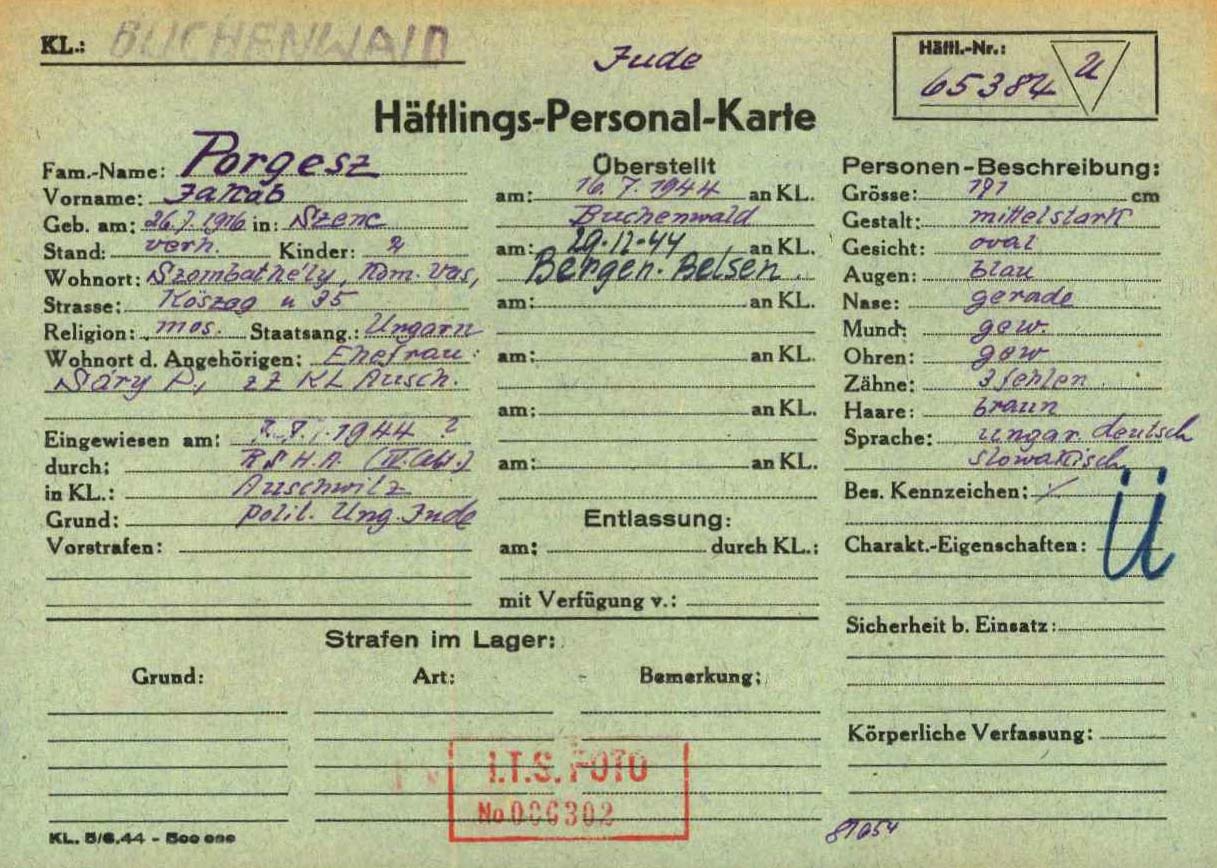 KL.: BUCHENWALD
Jude
Häftl.-Nr.:
65384 U
Häftlings-Personal-Karte
Fam.-Name: Porgesz
Vorname: Jakab
Geb. am: 26.7.1916 in: Szenc
Stand: verh. Kinder: 2
Wohnort: Szombathély, Kom. Vas,
Strasse: Köszog u 35
Religion: mos. Staatsang.: Ungarn
Wohnort d. Angehörigen: Ehefrau:
Sáry P., zZ KL Ausch.
Eingewiesen am: 1944 ?
durch: RSHA.
in KL.: Auschwitz
Grund: polit. Ung. Jude
Vorstrafen:
Überstellt
am: 16.7.1944 an KL.
Buchenwald
am: 29.12.44 an KL.
Bergen-Belsen.
am: an KL.
am: an KL.
am: an KL.
am: an KL.
Entlassung:
am: durch KL.:
mit Verfügung v.:
Personen-Beschreibung:
Grösse: 171 cm
Gestalt: mittelstark
Gesicht: oval
Augen: blau
Nase: gerade
Mund: gew.
Ohren: gew
Zähne: 3 fehlen
Haare: braun
Sprache: ungar. deutsch
slowakisch
Bes. Kennzeichen: /
Ü
Charakt.-Eigenschaften:
Sicherheit b. Einsatz:
Körperliche Verfassung:
Strafen im Lager:
Grund: Art: Bemerkung:
I.T.S. FOTO
No 006302
KL. 5/6.44 - 500 000